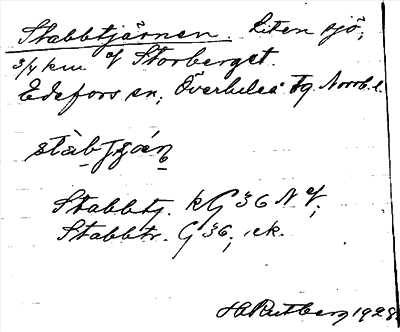 Stabbtjärnen. Liten sjö,
3/4 km af Storberget.
Edefors sn, Överluleå tg. Norrb. l.
stàb
Stabbtj. kG 36 N
Stabbtr. G 36, ek.
H Rutberg 1928.